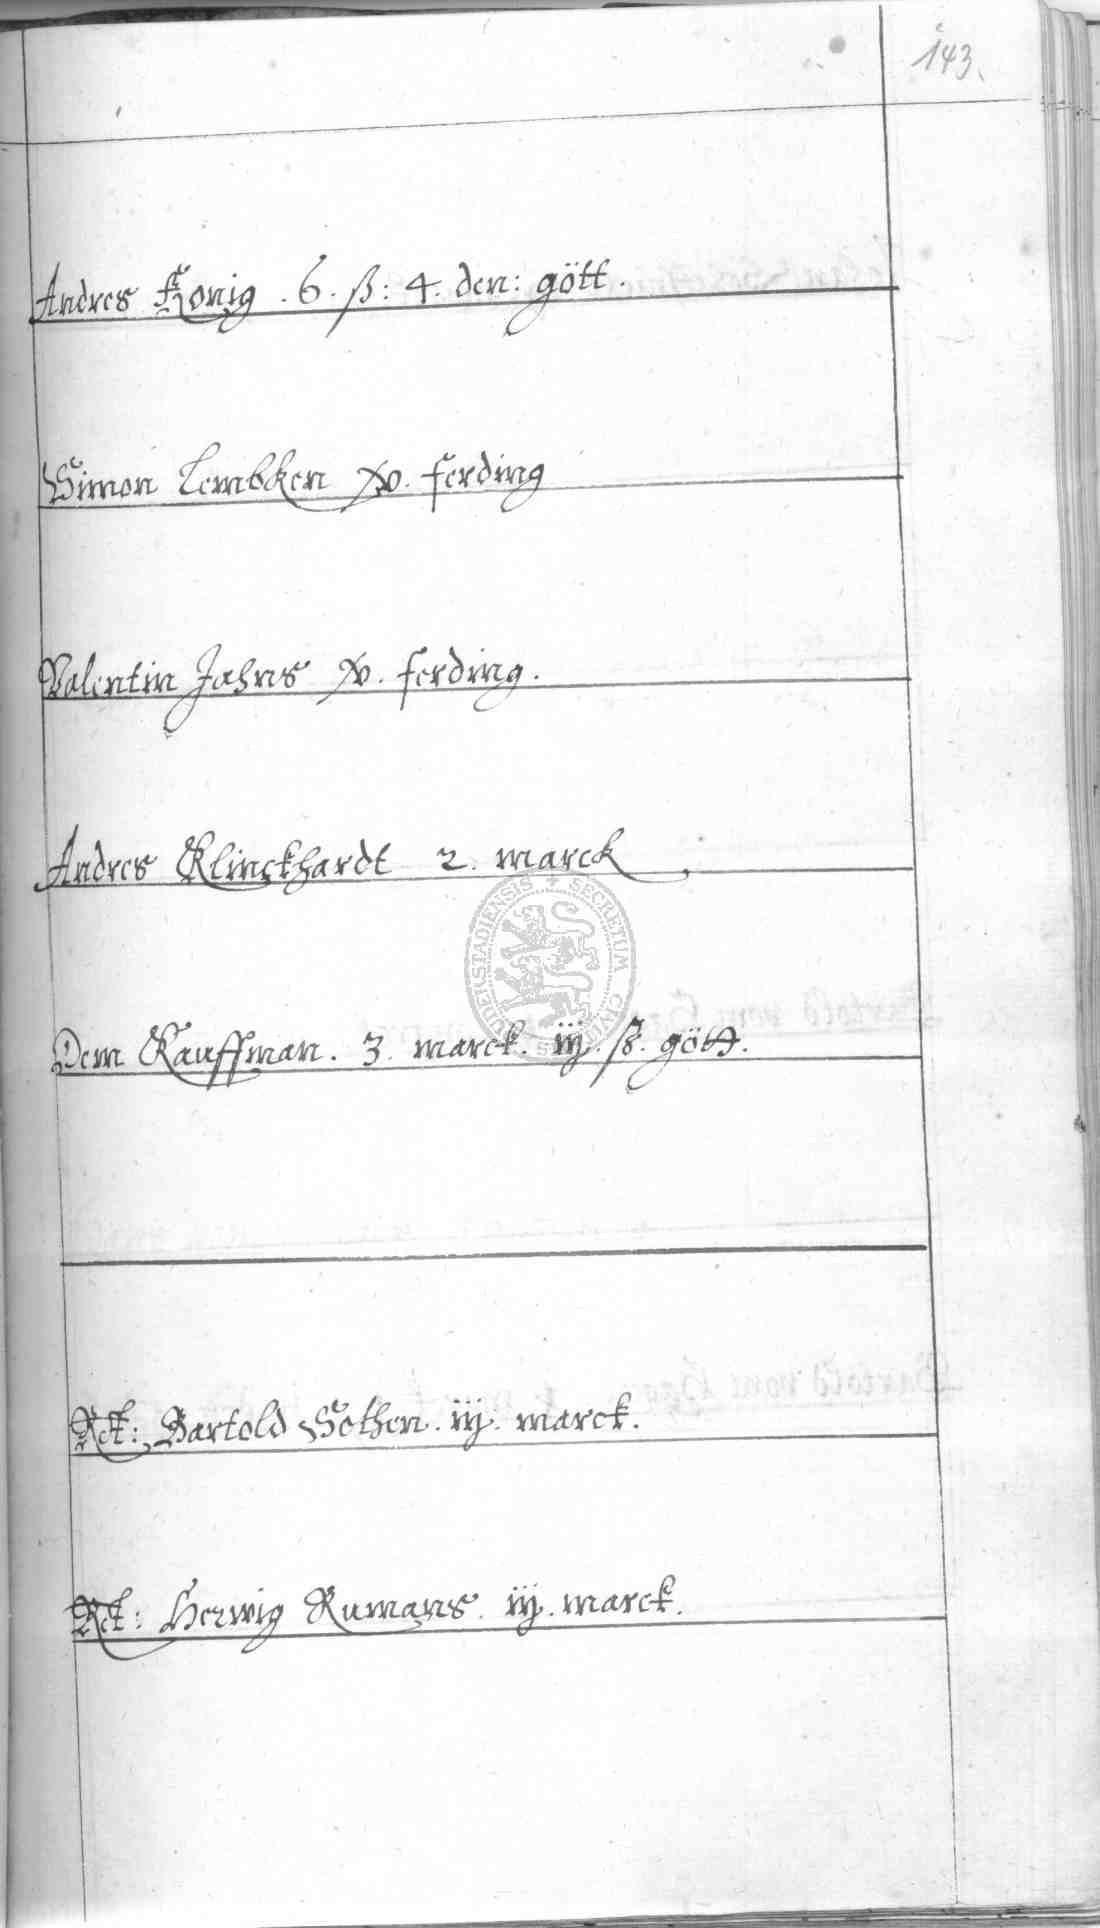 143.
Andres Konig . 6 . ß : 4 . den : gött .
Simon Lembken xv . ferding
Valentin Jahns xv . ferding .
Andres Klinckhardt 2 . marck
SECRETUM CIVITATIS DUDERSTADIENSIS
Dem Kauffman . 3 . marck . iij . ß . gött .
Rct : Bartold Sothen . iij . marck .
Rct : Herwig Rumans . iij . marck .